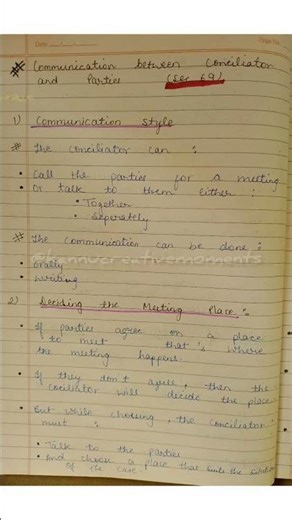 Date
# Communication between Conciliator
and Parties (Sec 69)
1) Communication Style
# The Conciliator can :
• Call the parties for a meeting
• Or talk to them either :
• Together
• Seperately
# The communication can be done :
@bannucreativemoments
• Orally
• Writing
2) Deciding the Meeting Place :
• If parties agree on a place
to meet that's where
the meeting happens.
• If they don't agree, then the
conciliator will decide the place
• But while choosing, the Conciliator
must :
• Talk to the parties
• And choose a place that suits the
of the case.